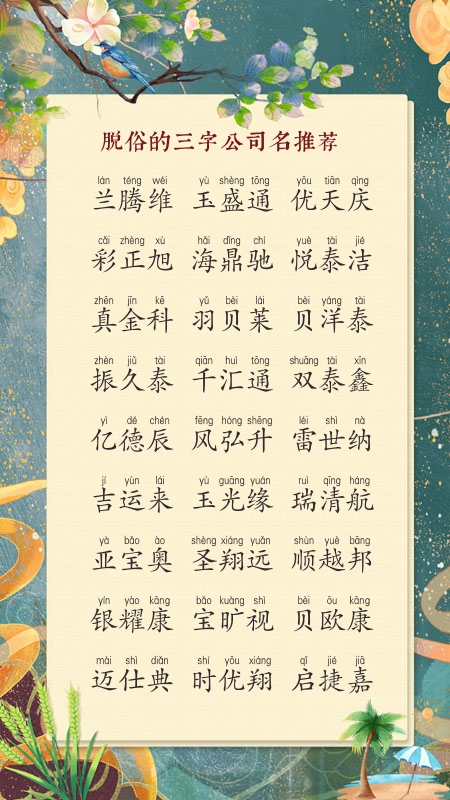 脱俗的三字公司名推荐
lán téng wéi yù shèng tōng yōu tiān qìng
兰腾维 玉盛通 优天庆
cǎi zhèng xù hǎi dǐng chí yuè tài jié
彩正旭 海鼎驰 悦泰洁
zhēn jīn kē yǔ bèi lái bèi yáng tài
真金科 羽贝莱 贝洋泰
zhèn jiǔ tài qiān huì tōng shuāng tài xīn
振久泰 千汇通 双泰鑫
yì dé chén fēng hóng shēng léi shì nà
亿德辰 风弘升 雷世纳
jí yùn lái yù guāng yuán ruì qīng háng
吉运来 玉光缘 瑞清航
yà bǎo ào shèng xiáng yuǎn shùn yuè bāng
亚宝奥 圣翔远 顺越邦
yín yào kāng bǎo kuàng shì bèi ōu kāng
银耀康 宝旷视 贝欧康
mài shì diǎn shí yōu xiáng qǐ jié jiā
迈仕典 时优翔 启捷嘉